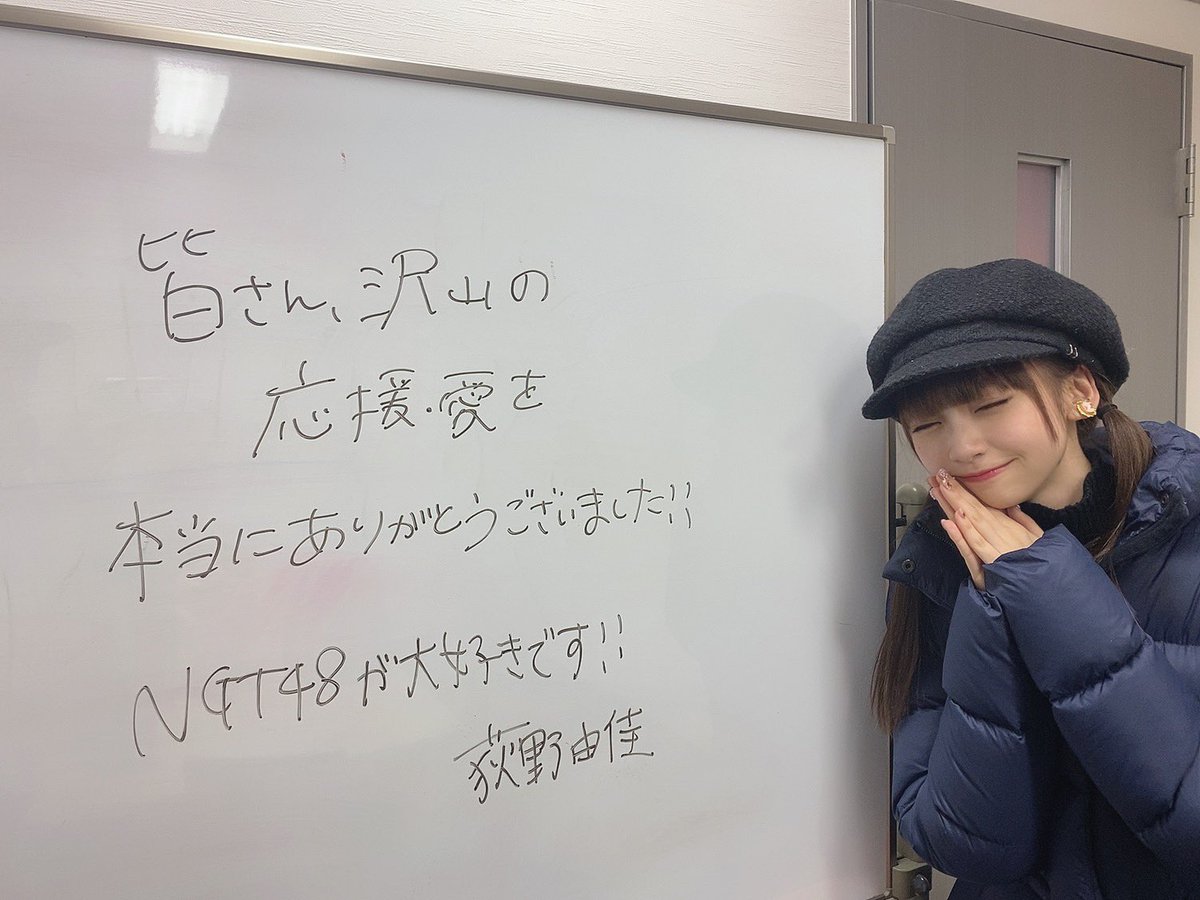 皆さん、沢山の
応援・愛を
本当にありがとうございました!!
NGT48が大好きです!!
荻野由佳